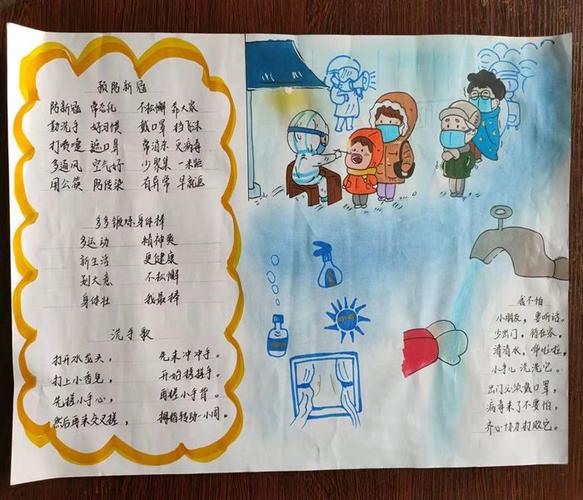 预防新冠
防新冠 常态化 不松懈 靠大家
勤洗手 好习惯 戴口罩 挡飞沫
打喷嚏 遮口鼻 常消杀 灭病毒
多通风 空气好 少聚集 一米距
用公筷 防传染 有异常 早就医
多多锻炼身体棒
多运动 精神爽
新生活 更健康
别大意 不松懈
身体壮 我最棒
洗手歌
打开水龙头, 先来冲冲手。
打上小香皂, 开始搓搓手。
先搓小手心, 再搓小手背。
然后再来交叉搓, 拇指转动一小周。
我不怕
小朋友,要听话。
少出门,待在家。
清清水,哗啦啦。
小手儿 洗洗它。
出门必须戴口罩,
病毒来了不要怕,
齐心协力打败它。